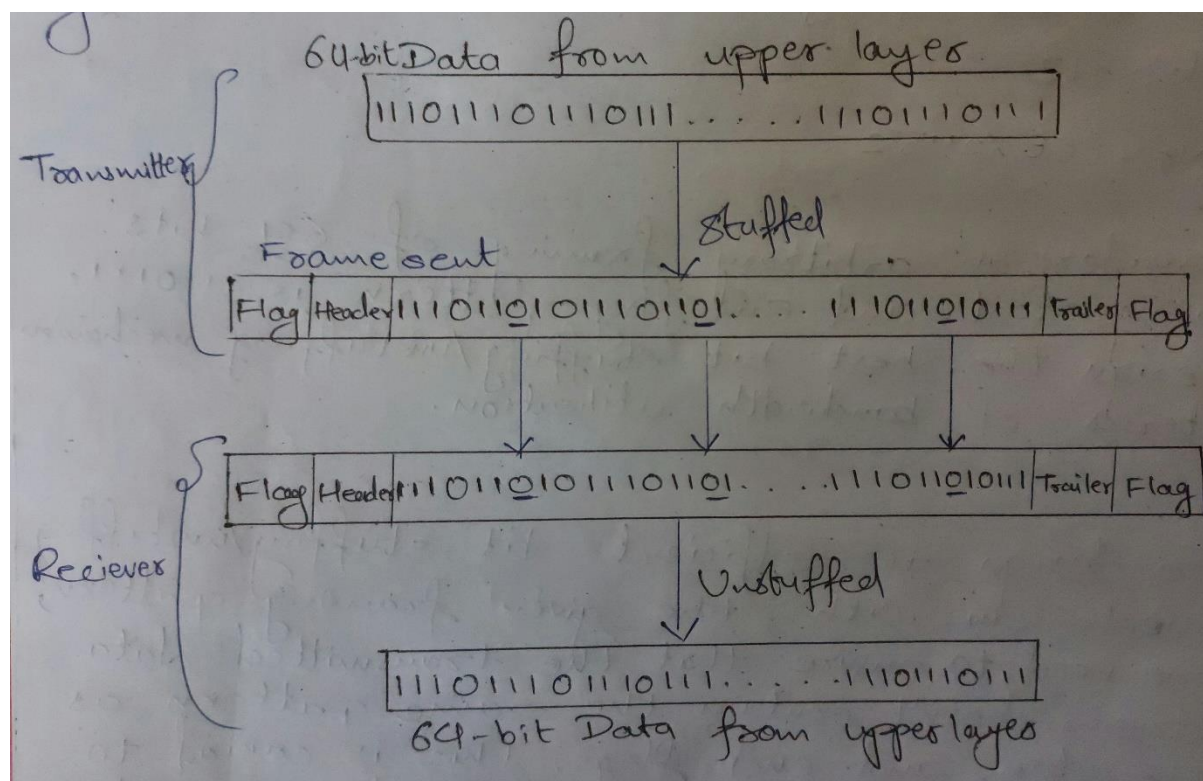 64-bit Data from upper layer
1110111011110111.....11101110111
Transmitter
Stuffed
Frame sent
Flag Header 11101101011101101.... 111011010111 Trailer Flag
Flag Header 11101101011101101.... 111011010111 Trailer Flag
Reciever
Unstuffed
1110111011110111......11101110111
64-bit Data from upper layer